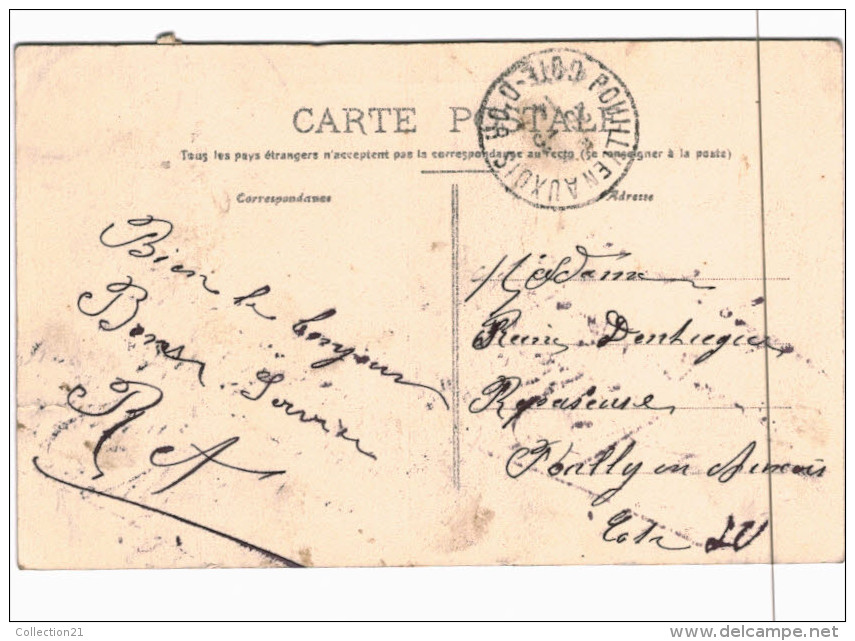 CARTE POSTALE
Tous les pays étrangers n'acceptent pas la correspondance au recto. (Se renseigner à la poste)
Correspondance
Adresse
POUILLY EN AUXOIS COTE-D'OR
Bien le bonjour
Bons Souvenir
R A
Madame
Reine
Repasseuse
Pouilly en Auxois
Cote
Collection21
www.delcampe.net